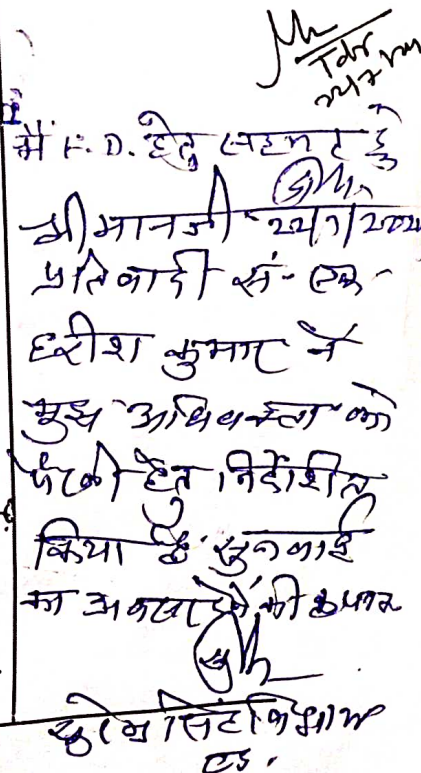 Tdr
22/7/24
मैं F.D. हेतु सहमत हूँ
श्रीमानजी 22/7/2024
प्रतिवादी सं- एक
हरीश कुमार ने
मुझ अधिवक्ता को
पैरवी हेतु निर्देशित
किया है सुनवाई
का अवसर देने की कृपा करें
एड.